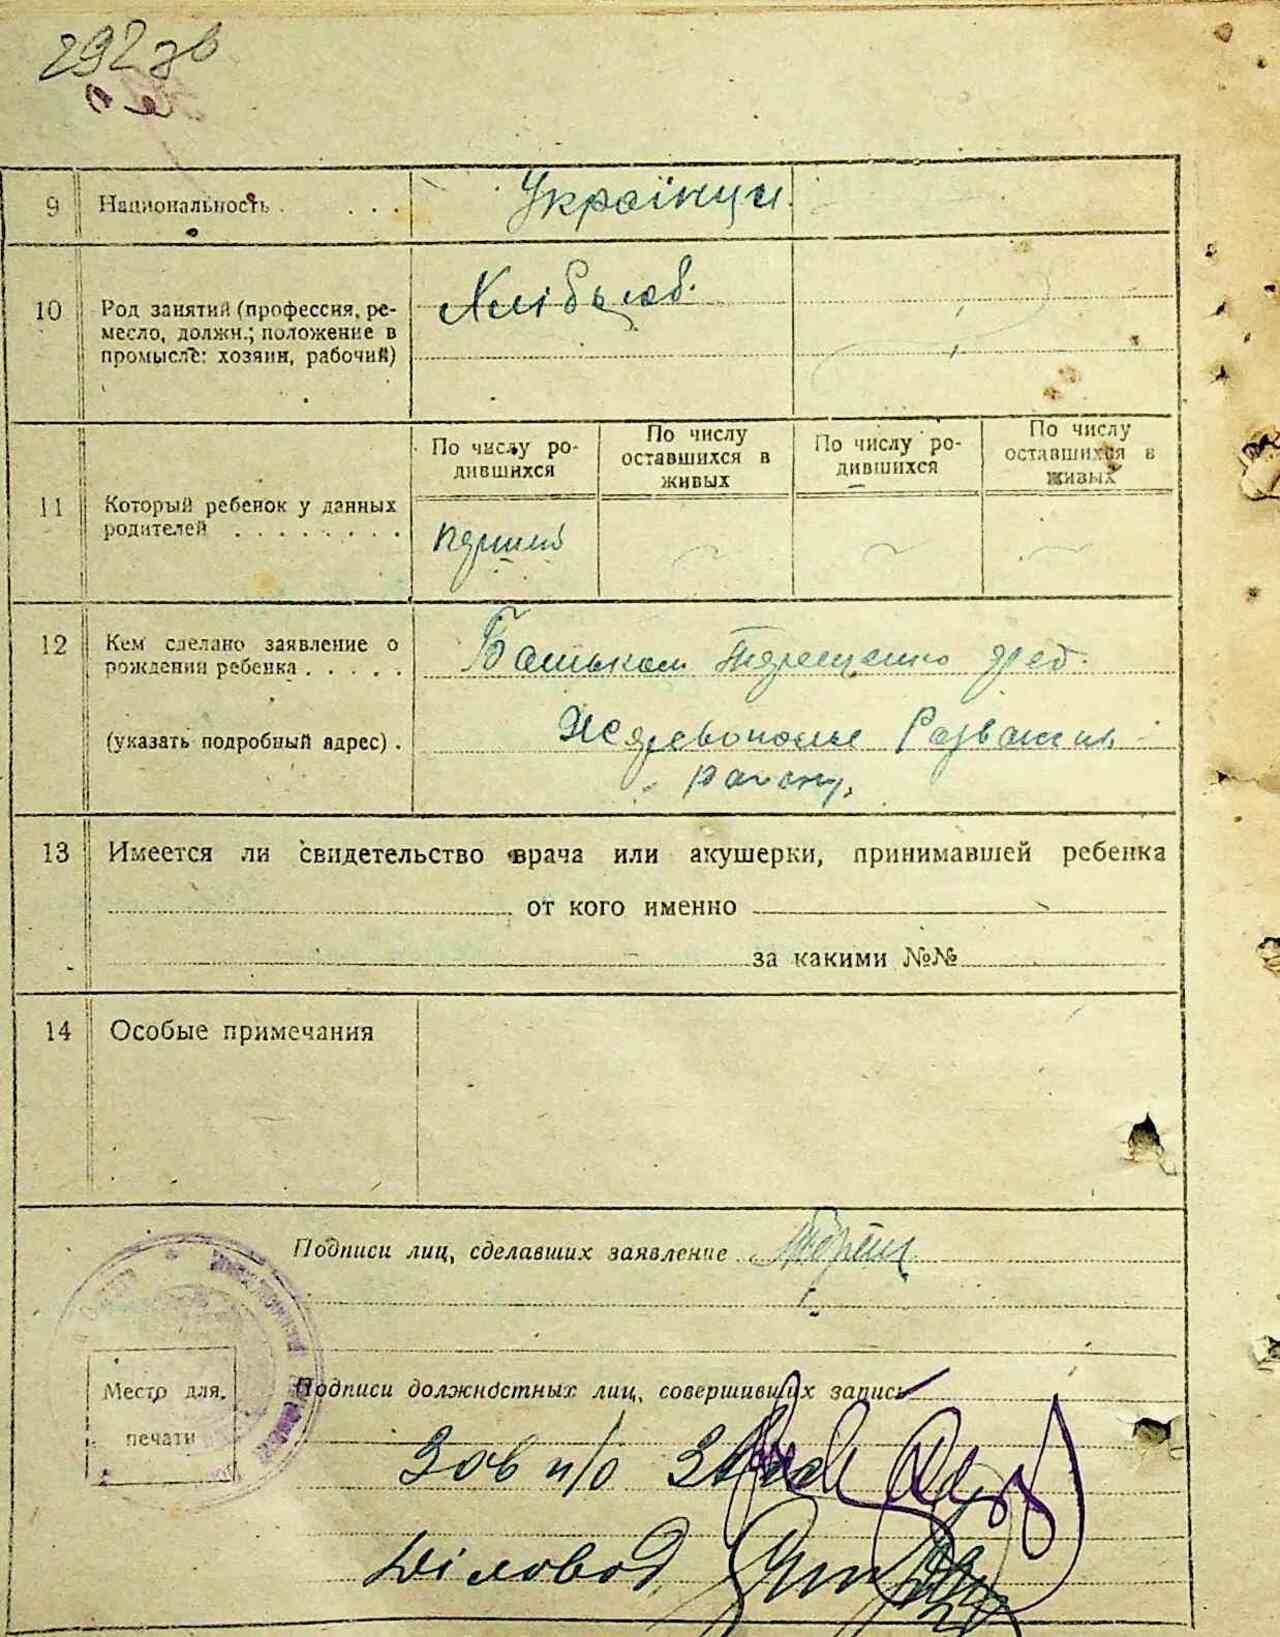 292 зв
9 Национальность . . . . Українци
10 Род занятий (профессия, ре-
месло, должн.; положение в
промысле: хозяин, рабочий)
Хлібороб.
11 Который ребенок у данных
родителей . . . . . . . .
По числу ро-
дившихся
По числу
оставшихся в
живых
По числу ро-
дившихся
По числу
оставшихся в
живых
перший
12 Кем сделано заявление о
рождении ребенка . . . . .
(указать подробный адрес) .
Батьком Терещенко
району.
13 Имеется ли свидетельство врача или акушерки, принимавшей ребенка
от кого именно
за какими №№
14 Особые примечания
Подписи лиц, сделавших заявление
Место для
печати
Подписи должностных лиц, совершивших запись
Зав
Діловод